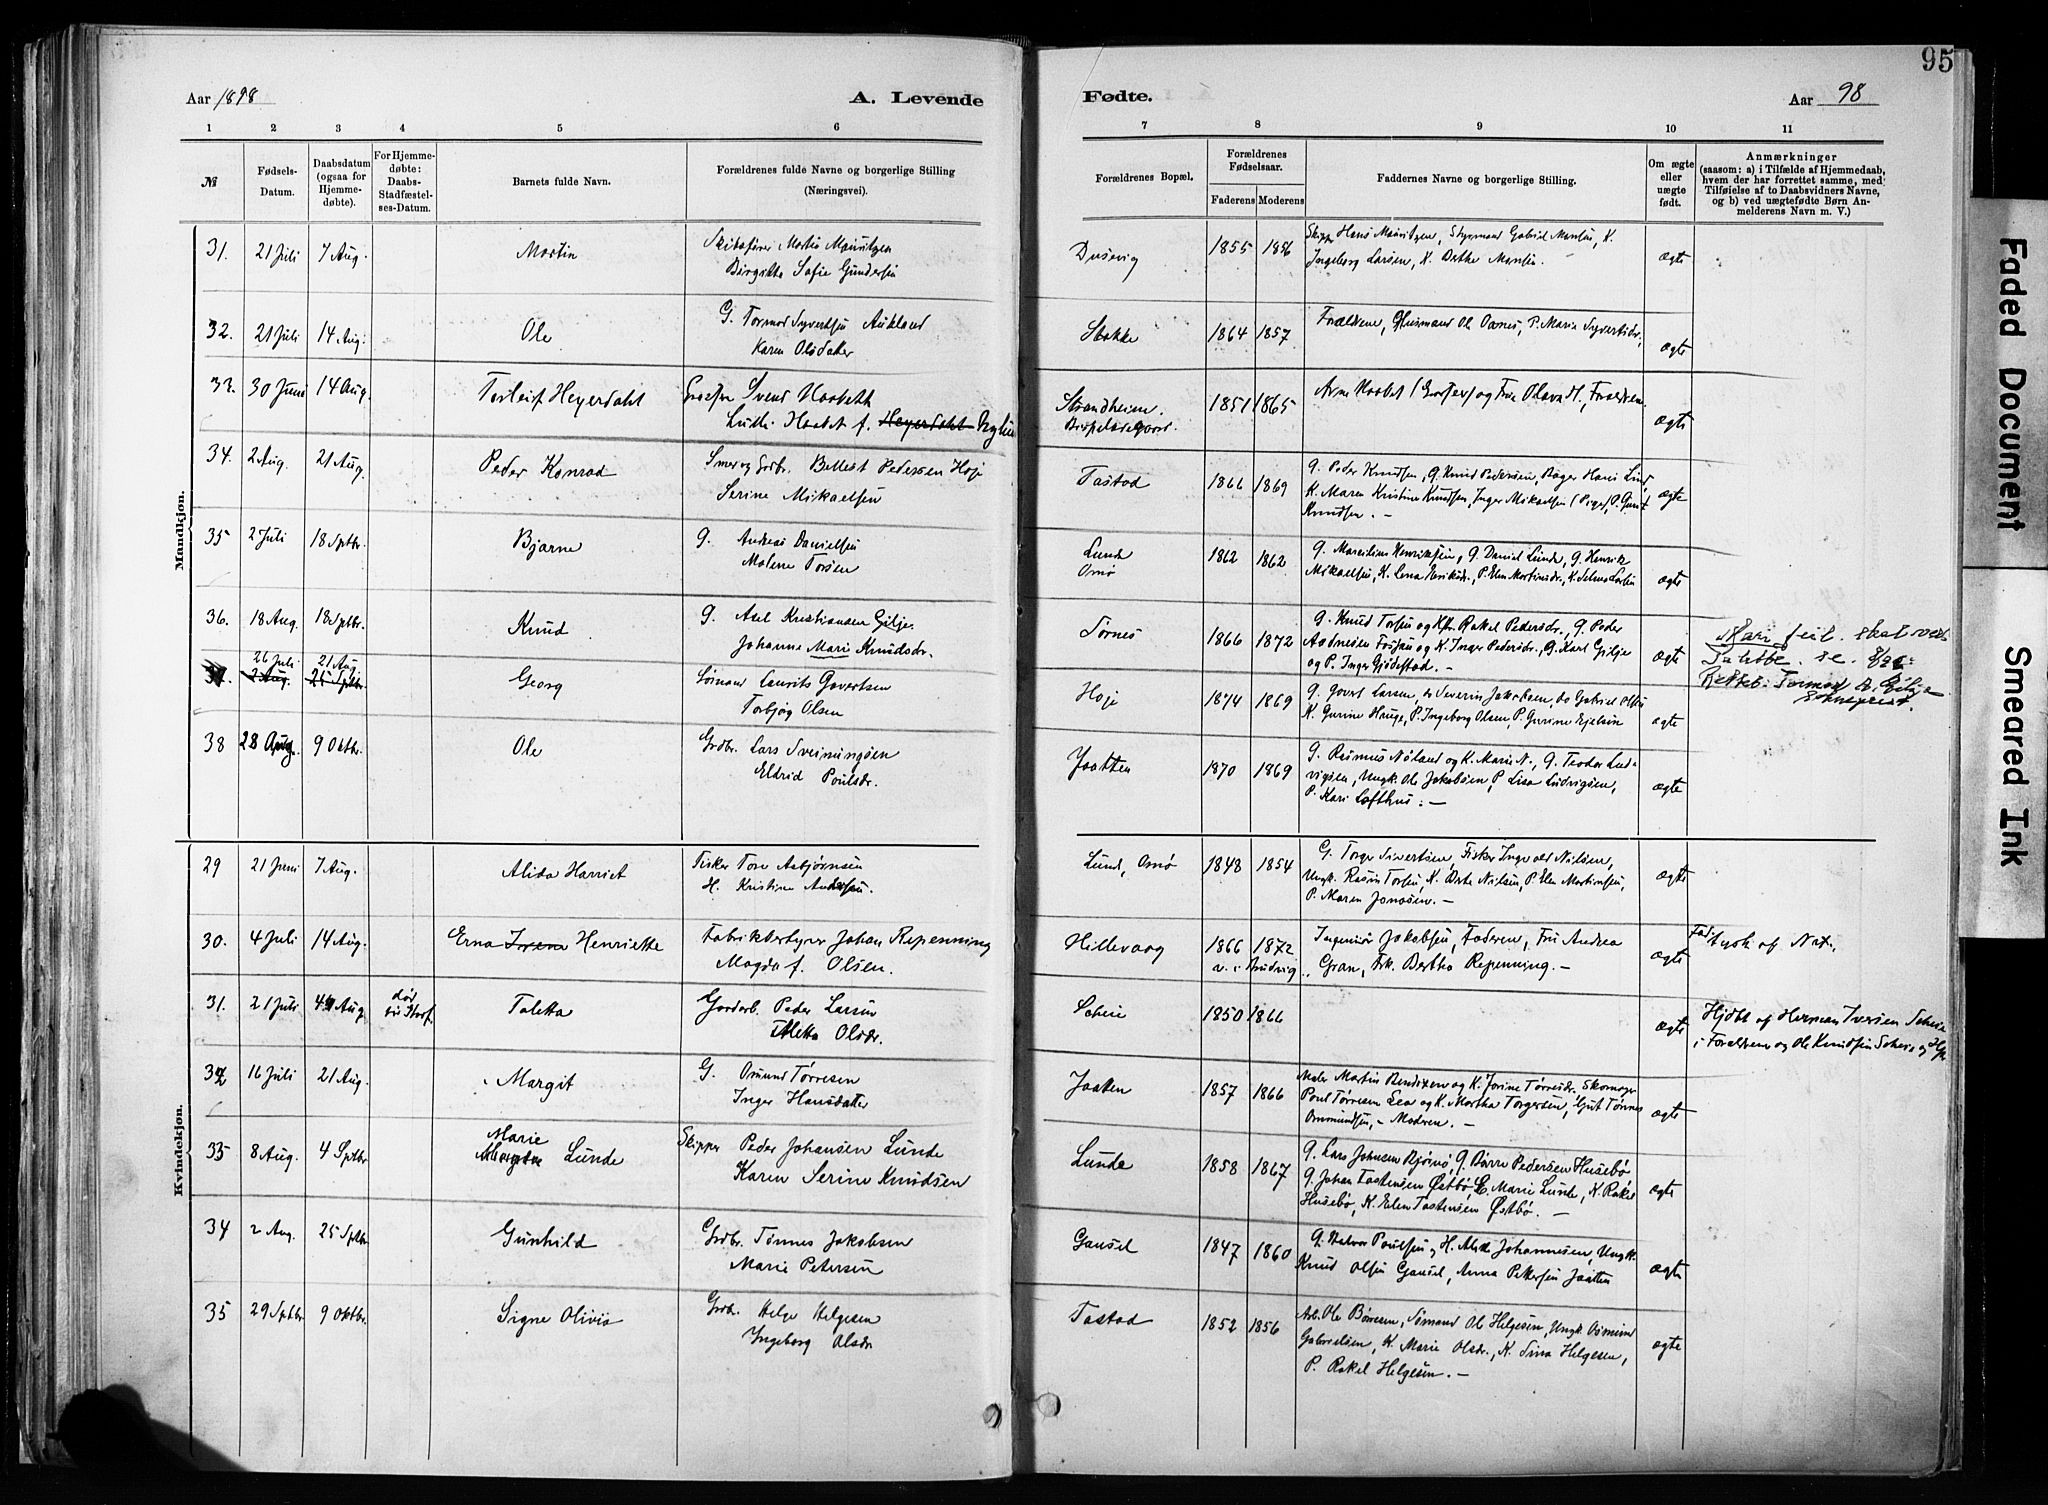 95
Aar 1898
A. Levende
Fødte.
Aar 98
1 2 3 4 5 6 7 8 9 10 11
№
Fødsels-
Datum.
Daabsdatum
(ogsaa for
Hjemme-
døbte).
For Hjemme-
døbte:
Daabs-
Stadfæstel-
ses-Datum.
Barnets fulde Navn.
Forældrenes fulde Navne og borgerlige Stilling
(Næringsvei).
Forældrenes Bopæl.
Forældrenes
Fødselsaar.
Faderens Moderens
Faddernes Navne og borgerlige Stilling.
Om ægte
eller
uægte
født.
Anmærkninger
(saasom: a) i Tilfælde af Hjemmedaab,
hvem der har forrettet samme, med
Tilføielse af to Daabsvidners Navne,
og b) ved uægtefødte Børn An-
melderens Navn m. V.)
Mandkjøn.
31. 21 Juli 7 Aug. Martin
Skibsfører Martin Mauritzen
Birgitte Sofie Gundersen
Dusevig 1855 1856
Skipper Hans Mauritzen, Styrmand Gabriel Monsen, K.
Ingeborg Larsen, K. Berthe Monsen.
ægte
32. 21 Juli 14 Aug. Ole
G. Tormod Syvertsen Aukland
Karen Olsdatter
Stokke 1864 1857
Forældrene, Husmand Ole, P. Maria Syvertsdr.
ægte
33. 30 Juni 14 Aug. Torleif Heyerdahl
Svend Haabeth
f. Heyerdahl
Strandheim
1851 1865
og Fru Olava H., Forældrene
ægte
34. 2 Aug. 21 Aug. Peder Konrad
Smed og Grdbr. Bellest Pedersen Hoje
Serine Mikaelsen
Tastad 1866 1869
G. Peder Knudsen, G. Knud Pedersen, Bager Hans Lind,
K. Maren Kristine Knudsen, Inger Mikaelsen (Pige), P. Guril
Knudsen. -
ægte
35 2 Juli 18 Sptbr. Bjarne
G. Andreas Danielsen
Malene Torsen
Lunde
Omø
1862 1862
G. Marcelius Henriksen, G. Daniel Lunde, G. Henrik
Mikaelsen, K. Lena Eriksdr., P. Elen Martinsdr., K. Selma Larsen
ægte
36. 18 Aug. 18 Sptbr. Knud
G. Axel Kristiansen Gilje.
Johanne Marie Knudsdr.
Sørnes 1866 1872
G. Knud Torsen og Hstr. Rakel Pedersdr., G. Peder
Aadnesen Fosjan og K. Inger Pedersdr., G. Karl Gilje
og P. Inger Gjødestad.
ægte
Mari feil. skal være
37. 26 Juli 21 Aug. Georg
2 Aug. 25 Sptbr.
Sømand Laurits Govertsen
Torbjøg Olsen
Hoje 1874 1869
G. Govert Larsen, do Severin Jakobsen, do Gabriel Olsen
K. Gurine Hauge, P. Ingeborg Olsen, P. Gurine Ejelsen
ægte
38 28 Aug. 9 Oktbr. Ole
Grdbr. Lars Sveinungsen
Eldrid Poulsdr.
Jaatten 1870 1869
G. Rasmus Nøland og K. Marie N., G. Teodor Lud-
vigsen, Ungk. Ole Jakobsen, P. Lisa Ludvigsen,
P. Kari Lofthus: -
ægte
Kvindekjøn.
29 21 Juni 7 Aug. Alida Harriet
Fisker Tore Asbjørnsen
H. Kristine Andersen.
Lunde, Omø 1848 1854
G. Torger Sivertsen, Fisker Ingvald Nilsen,
Ungk. Rasmus Torsen, K. Berte Nilsen, P. Elen Martinsen,
P. Maren Jonasen. -
ægte
30. 4 Juli 14 Aug. Erna Irene Henriette
Fabrikbestyrer Johan Repenning
Magda f. Olsen.
Hillevaag 1866 1872
Ingeniør Jakobsen, Faderen, Fru Andrea
Gran, Frk. Bertha Repenning. -
ægte
Fad. tysk af Nat.
31. 21 Juli 4 Aug. død
Taletta
Gaardbr. Peder Larsen
Taletta Olsdr.
Scheie 1850 1866
ægte
Hjdbt af Herman Iversen Scheie
i Forældrene og Ole Knudsen Scheie
32 16 Juli 21 Aug. Margit
G. Omund Tørresen
Inger Hansdatter
Jaatten 1857 1866
Maler Martin Bendixen og K. Jorine Tørresdr., Skomager
Poul Tørresen Lea og K. Martha Torgersen, Gut Tønnes
Ommundsen, - Moderen. -
ægte
33 8 Aug. 4 Sptbr. Marie Lunde
Skipper Peder Johansen Lunde
Karen Serine Knudsen
Lunde 1858 1867
G. Lars Johnsen Bjørnø, G. Børre Pedersen Husebø
G. Johan Tostensen Østbø, E. Marie Lunde, K. Rakel
Husebø, K. Elen Tostensen Østbø. -
ægte
34 2 Aug. 25 Sptbr Gunhild
Grdbr. Tønnes Jakobsen
Marie Petersen
Gausel 1847 1860
G. Halvor Poulsen og H. Johannesen, Ungk.
Knud Olsen Gausel, Anna Pettersen Jaatten
ægte
35 29 Sptbr 9 Oktbr. Signe Olivia
Grdbr. Helge Helgesen
Ingeborg Olsdr
Tastad 1852 1856
Arb. Ole Børresen, Sømand Ole Helgesen, Ungk. Osmund
Gabrielsen, K. Marie Olsdr., K. Sina Helgesen,
P. Rakel Helgesen. -
ægte
Faded Document
Smeared Ink